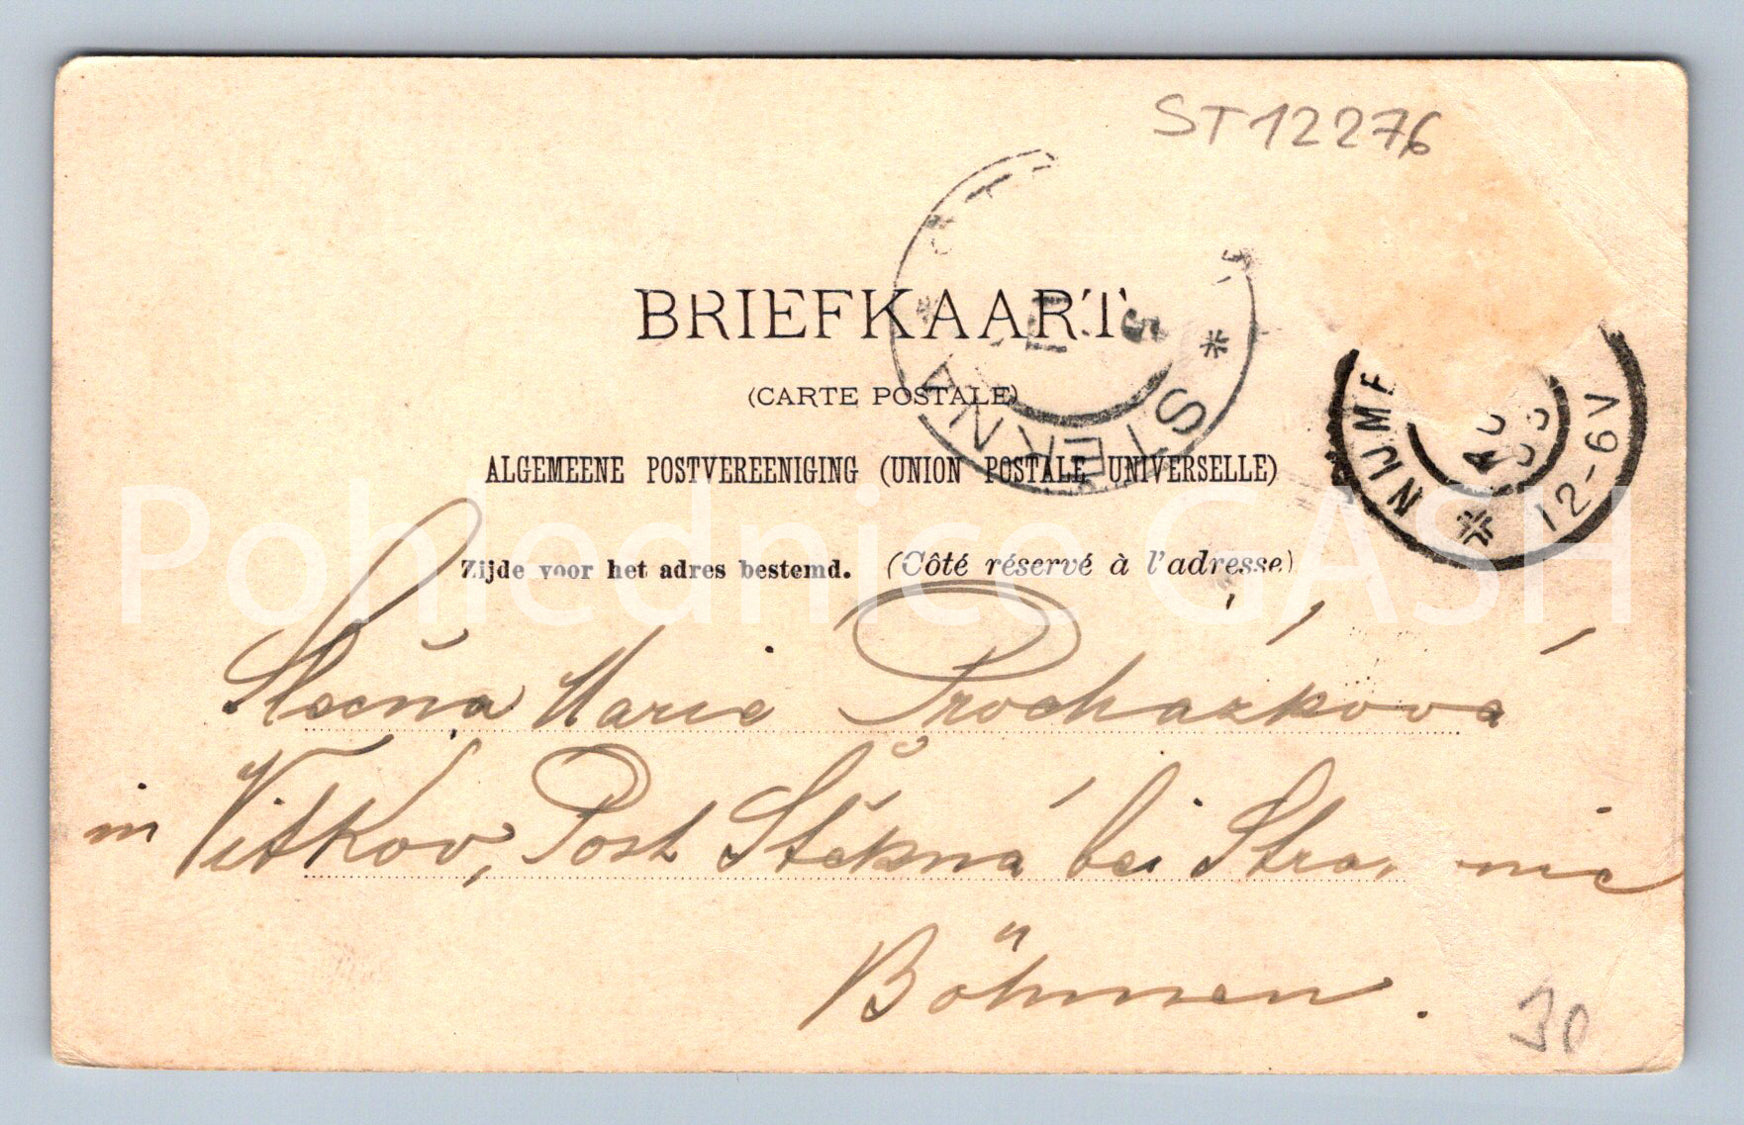 ST12276
BRIEFKAART
(CARTE POSTALE)
ALGEMEENE POSTVEREENIGING (UNION POSTALE UNIVERSELLE)
Zijde voor het adres bestemd. (Côté réservé à l'adresse)
STEKNA
NIJME
12-6V
Pohlednice GASH
Slečna Marie Procházková
in Vitkov, Post Štěkná bei Stra
Böhmen.
30